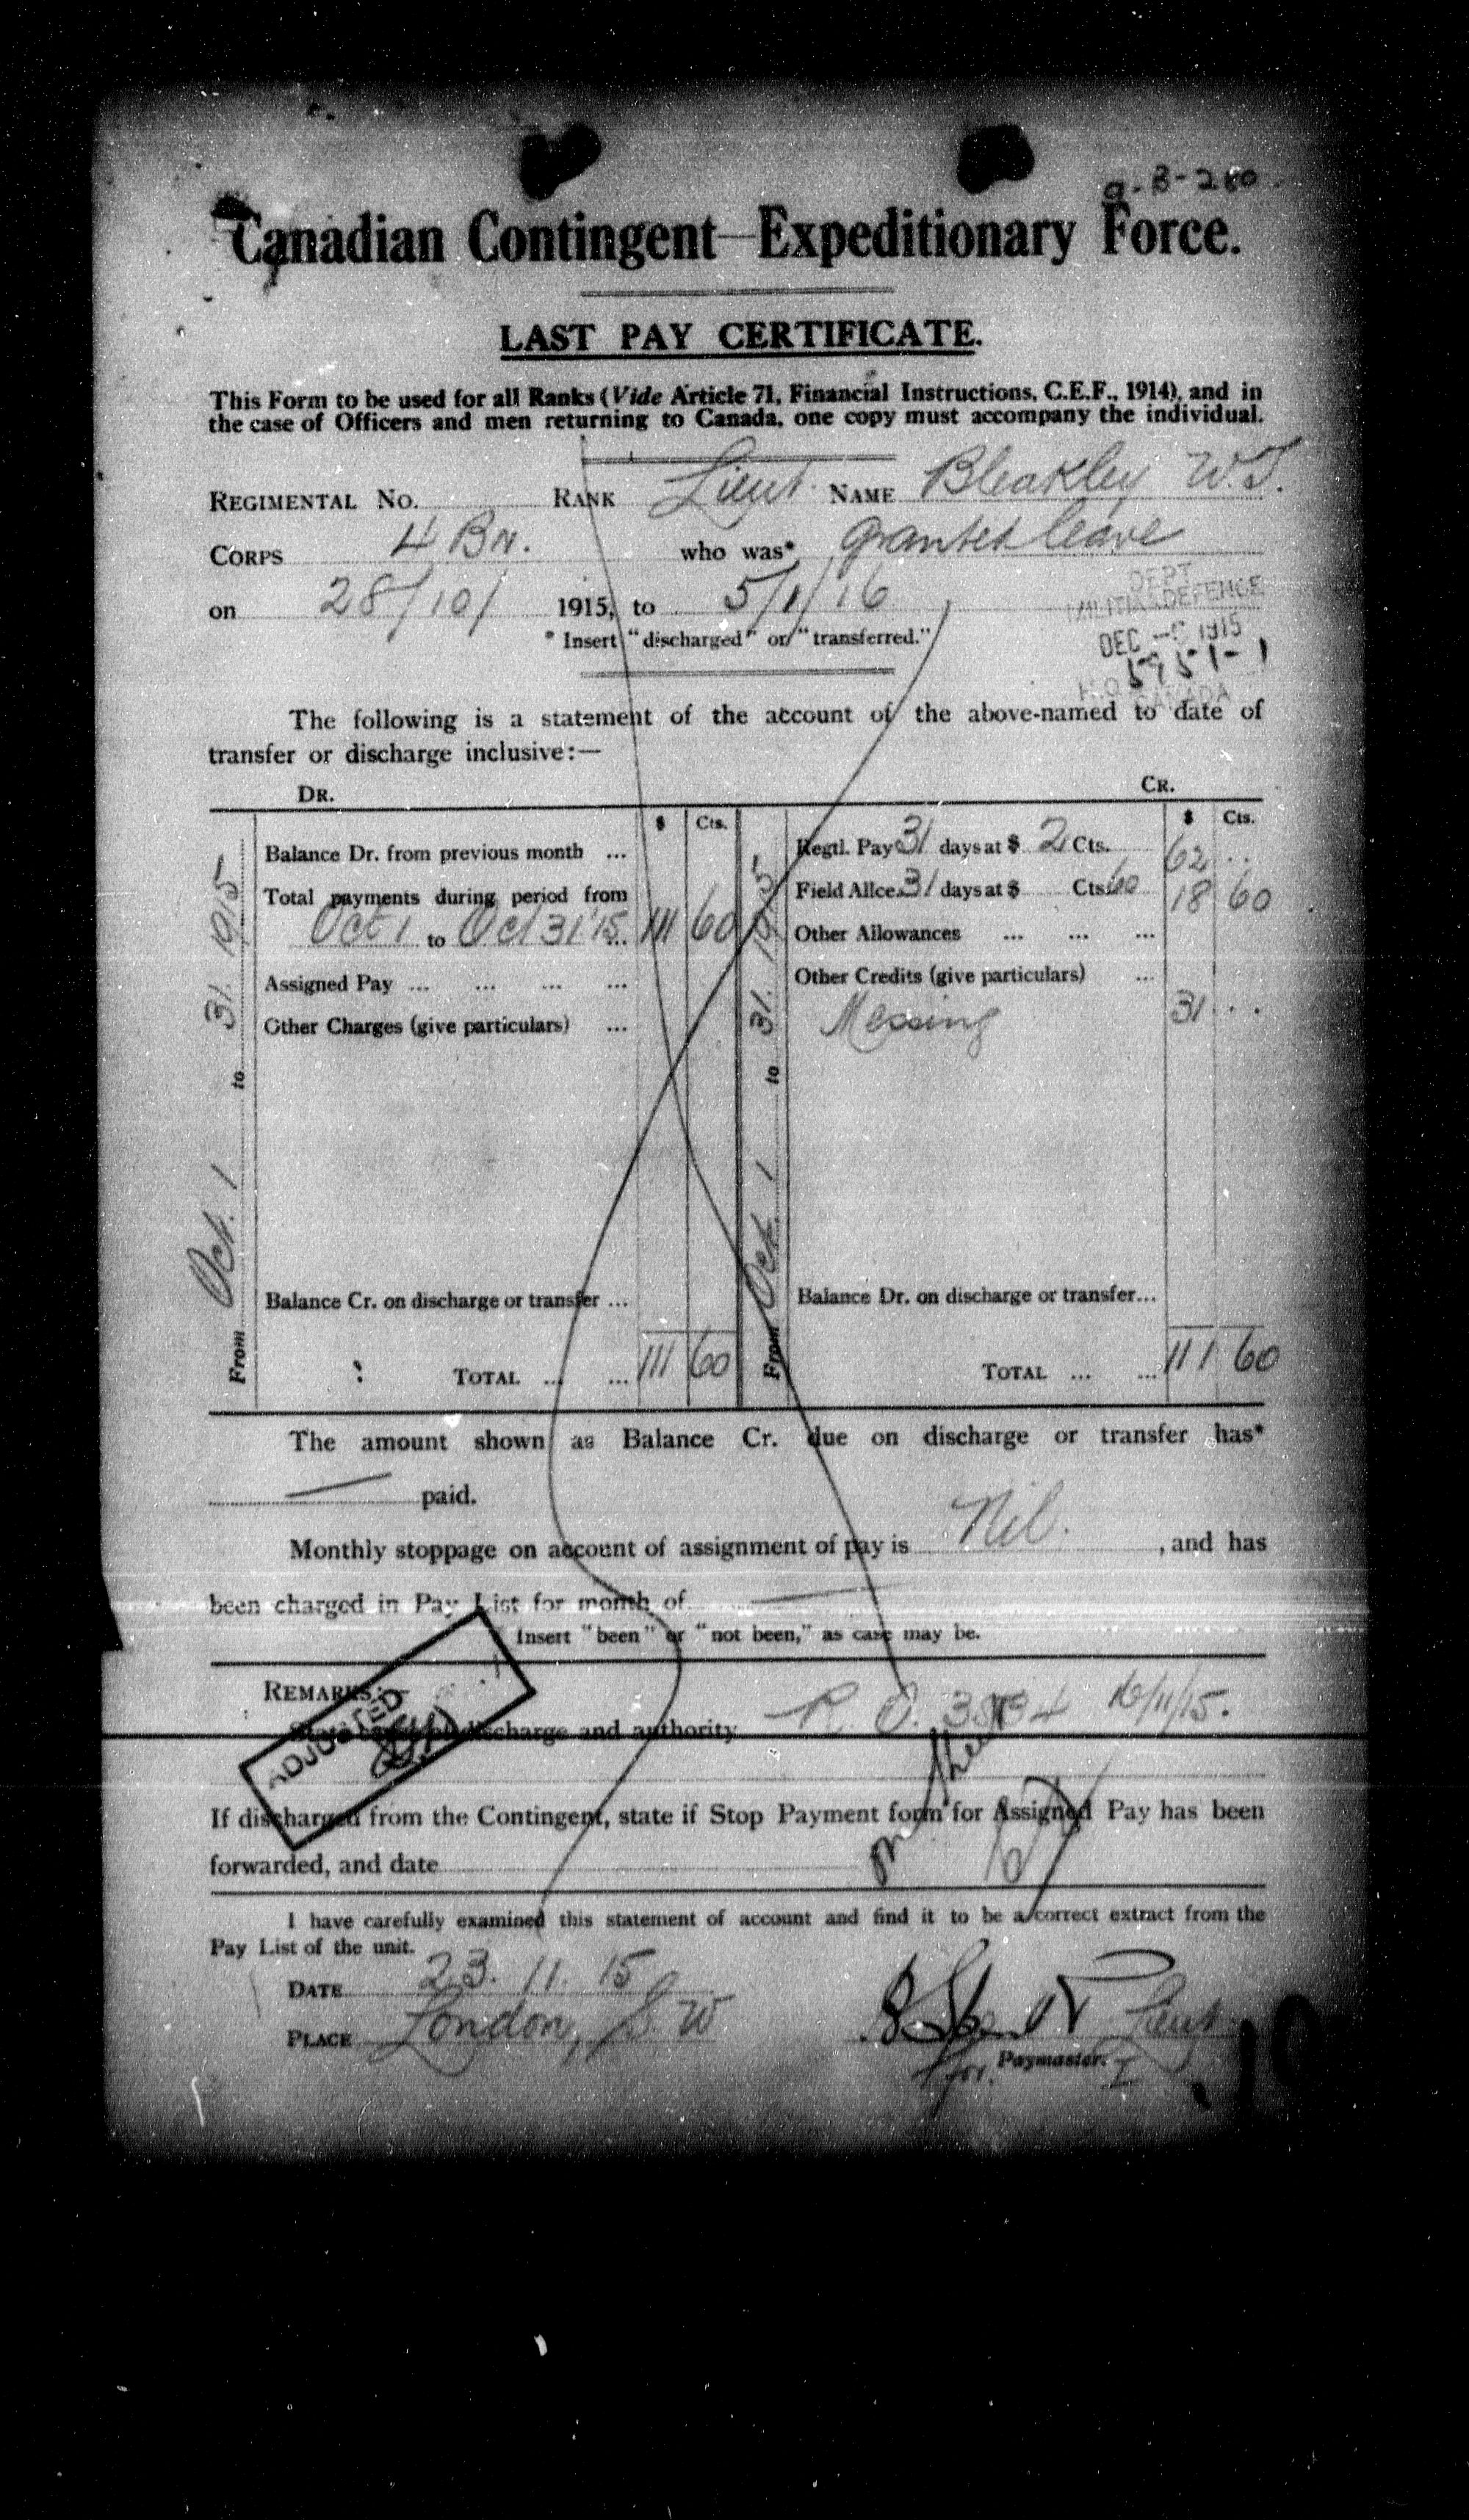 a-B-280.
Canadian Contingent—Expeditionary Force.
LAST PAY CERTIFICATE.
This Form to be used for all Ranks (Vide Article 71, Financial Instructions, C.E.F., 1914), and in
the case of Officers and men returning to Canada, one copy must accompany the individual.
REGIMENTAL NO. RANK Lieut. NAME Bleakley W.J.
CORPS 4 Bn. who was* granted leave
on 28/10/ 1915, to 5/1/16
* Insert "discharged" or "transferred."
DEPT
MILITIA & DEFENCE
DEC 1915
5951-1
CANADA
The following is a statement of the account of the above-named to date of
transfer or discharge inclusive:—
DR. CR.
$ Cts. $ Cts.
From Oct. 1 to 31. 1915
Balance Dr. from previous month ...
Total payments during period from
Oct 1 to Oct 31 '15 ... 111 60
Assigned Pay ... ... ... ...
Other Charges (give particulars) ...
Balance Cr. on discharge or transfer ...
TOTAL ... ... 111 60
From Oct. 1 to 31. 1915
Regtl. Pay 31 days at $ 2 Cts. 62 ..
Field Allce. 31 days at $ Cts. 60 18 60
Other Allowances ... ... ...
Other Credits (give particulars) ...
Messing 31 ...
Balance Dr. on discharge or transfer...
TOTAL ... ... 111 60
The amount shown as Balance Cr. due on discharge or transfer has*
— paid.
Monthly stoppage on account of assignment of pay is Nil. , and has
been charged in Pay List for month of —
Insert "been" or "not been," as case may be.
REMARKS:—
State cause of discharge and authority R. O. 3834 16/11/15.
ADJUSTED
If discharged from the Contingent, state if Stop Payment form for Assigned Pay has been
forwarded, and date
I have carefully examined this statement of account and find it to be a correct extract from the
Pay List of the unit.
DATE 23. 11. 15
PLACE London, S. W
Lieut.
for. Paymaster. I